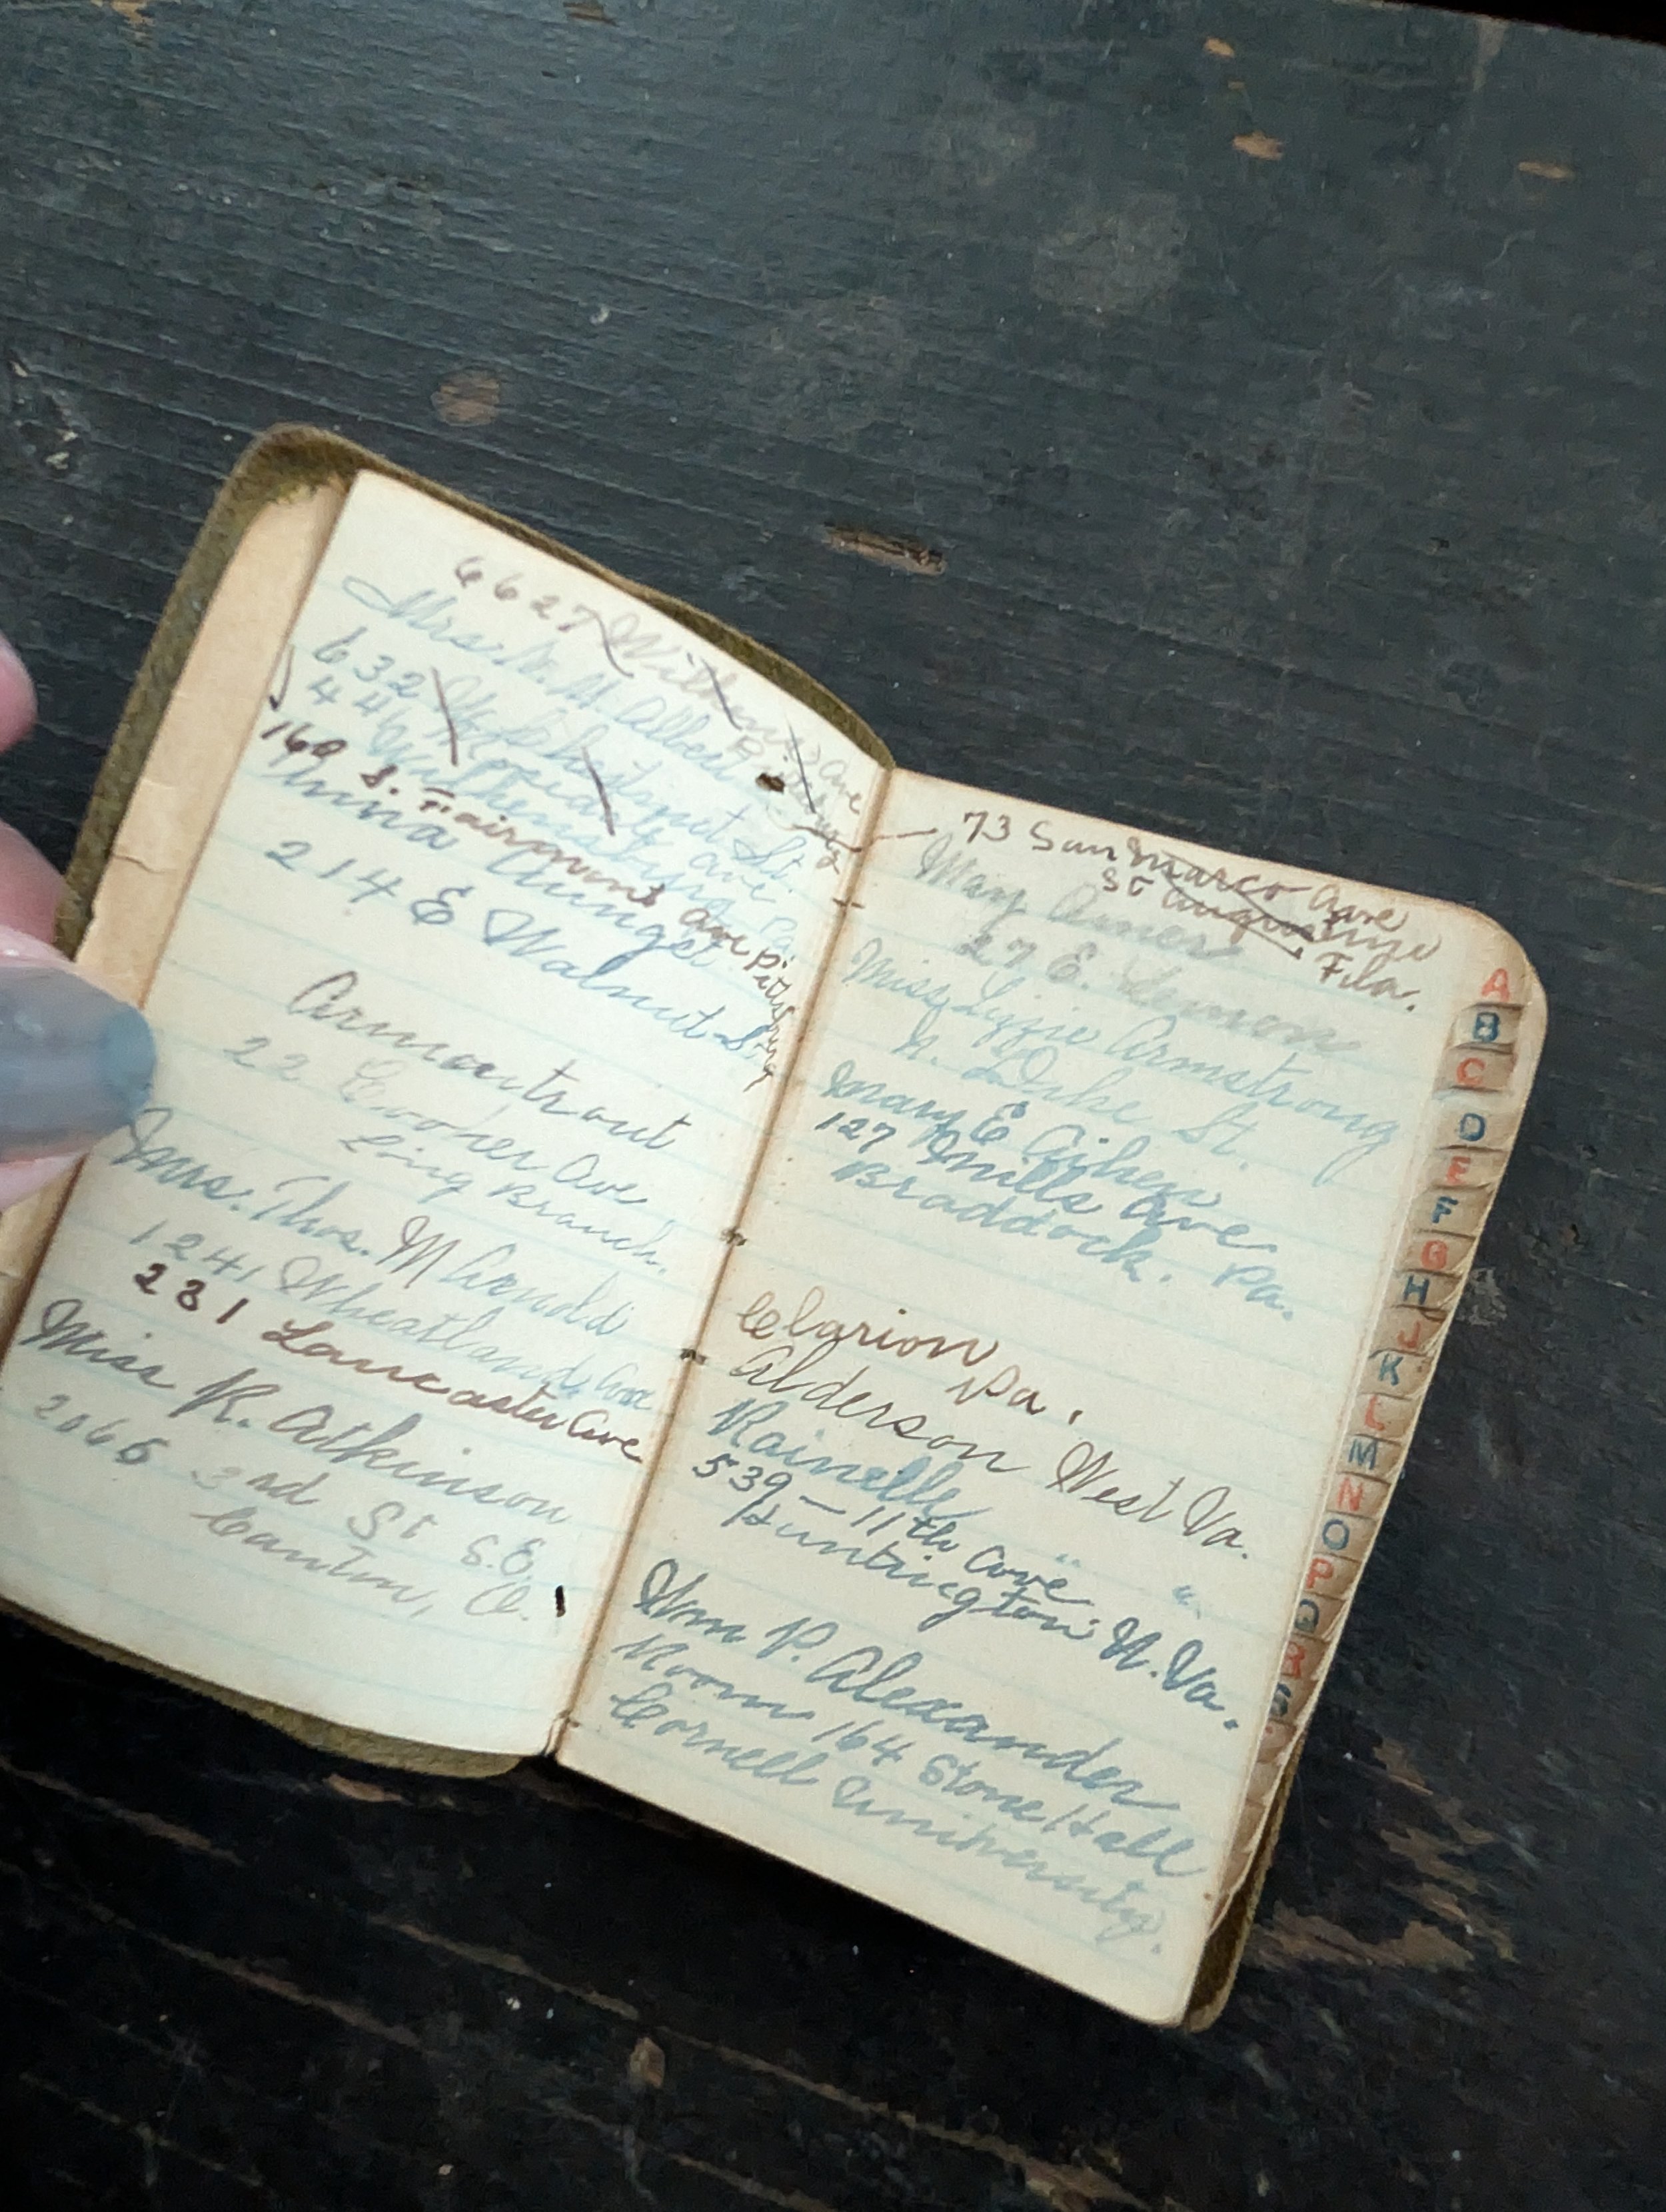 6627
Mrs. A. M. Albert
632 St.
446 Rosedale Ave
160 S. Fairmount Ave Pittsburg
Anna Aunget
214 E Walnut St.
Armoutrout
22 Cooper Ave
Long Branch.
Mrs. Thos. M Arnold
1241 Wheatland Ave
231 Lancaster Ave
Miss K. Atkinson
2065 3nd St S.E.
Canton, O.
73 San Marco Ave
St Augustine
Fila.
May Amer
27 E. Lemon
Miss Lizzie Armstrong
N. Duke St.
Mary E Aiken
127 Mills Ave
Braddock. Pa.
Clarion
Pa.
Alderson West Va.
Rainelle " "
539 - 11th Ave
Huntington W. Va.
Wm P. Alexander
Room 164 Stone Hall
Cornell University.
A
B
C
D
E
F
G
H
J
K
L
M
N
O
P
Q
R
S